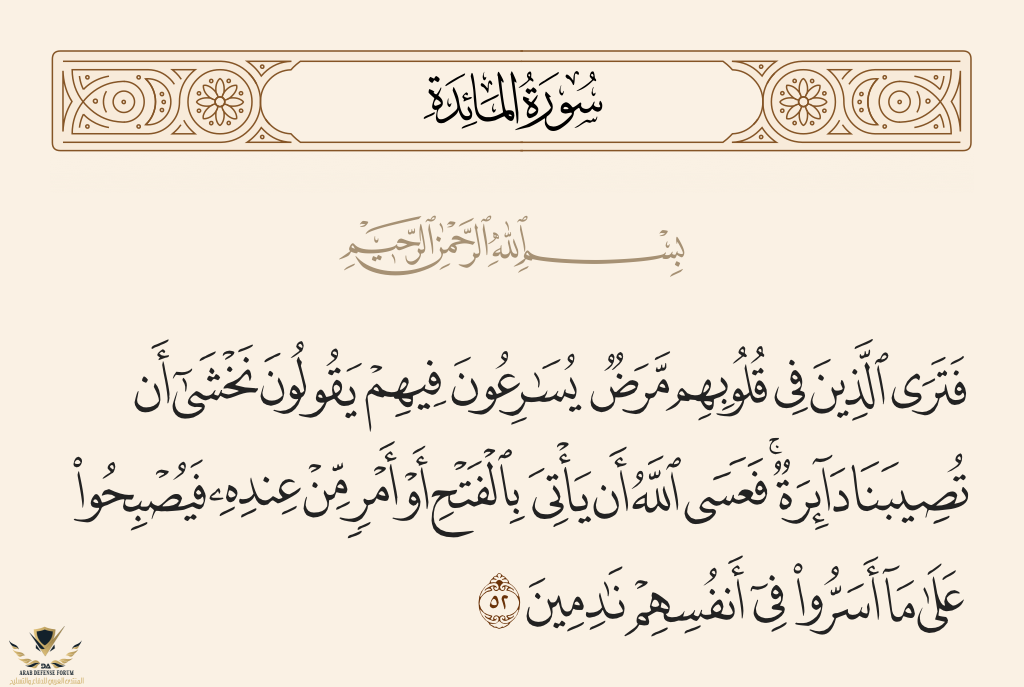 سُورَةُ المَائِدَةِ
بِسْمِ ٱللَّهِ ٱلرَّحْمَٰنِ ٱلرَّحِيمِ
فَتَرَى ٱلَّذِينَ فِى قُلُوبِهِم مَّرَضٌۭ يُسَـٰرِعُونَ فِيهِمْ يَقُولُونَ نَخْشَىٰٓ أَن
تُصِيبَنَا دَآئِرَةٌۭ ۚ فَعَسَى ٱللَّهُ أَن يَأْتِىَ بِٱلْفَتْحِ أَوْ أَمْرٍۢ مِّنْ عِندِهِۦ فَيُصْبِحُوا۟
عَلَىٰ مَآ أَسَرُّوا۟ فِىٓ أَنفُسِهِمْ نَـٰدِمِينَ ٥٢
DA
ARAB DEFENSE FORUM
المنتدى العربي للدفاع والتسليح